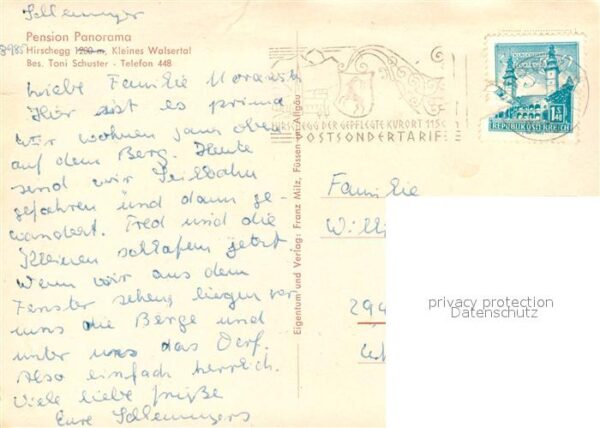 Pension Panorama
Hirschegg 1200 m, Kleines Walsertal
Bes. Toni Schuster - Telefon 448
Liebe Familie
Hier ist es prima
wir wohnen ganz oben
auf dem Berg. Heute
sind wir Seilbahn
gefahren und dann ge-
wandert. Fred und die
Kleinen schlafen jetzt
Wenn wir aus dem
Fenster sehen, liegen vor
uns die Berge und
unter uns das Dorf.
Also einfach herrlich.
Viele liebe Grüße
Eure
Eigentum und Verlag: Franz Milz, Füssen im Allgäu
HIRSCHEGG DER GEPFLEGTE KURORT
POSTSONDERTARIF
REPUBLIK ÖSTERREICH
Familie
Willi
privacy protection
Datenschutz